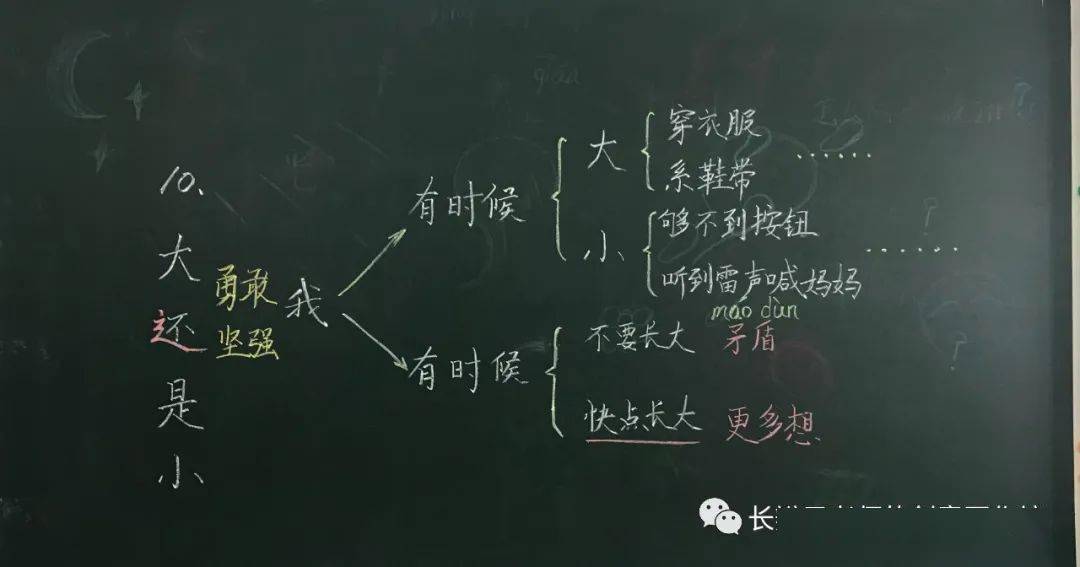 10、
大还是小
勇敢
坚强
我
有时候
大
穿衣服
系鞋带
……
小
够不到按钮
听到雷声喊妈妈
……
有时候
不要长大
máo dùn
矛盾
快点长大
更多想
长